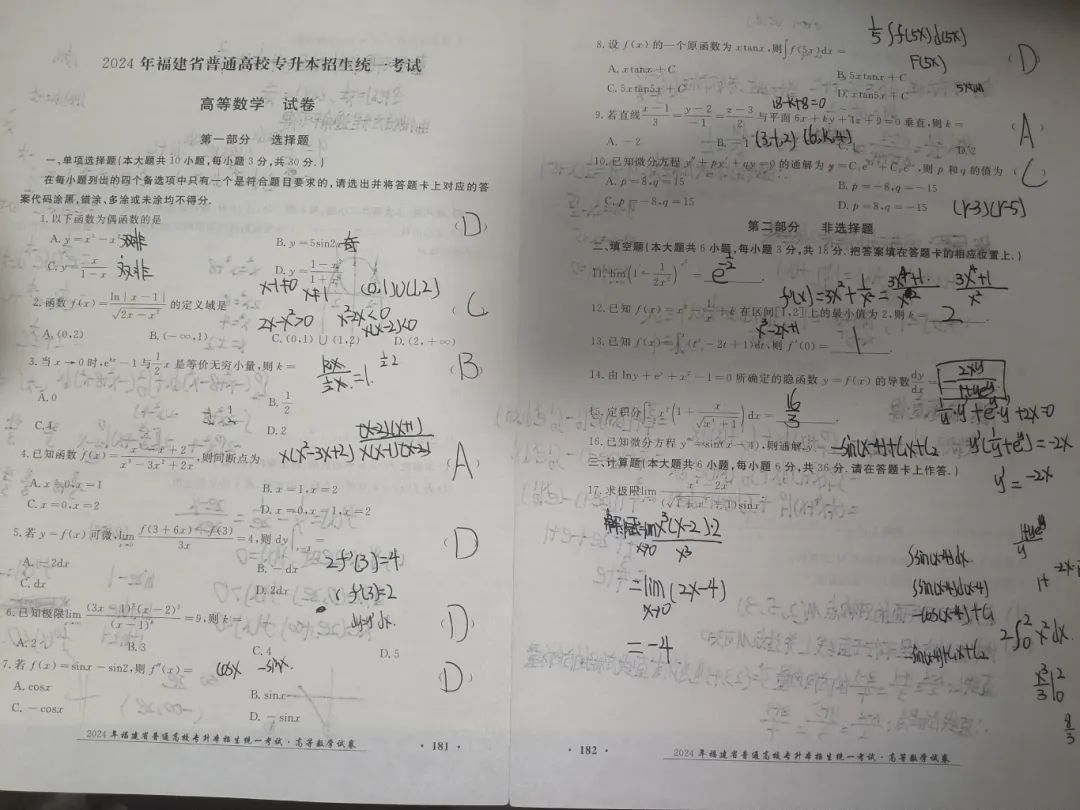 2024年福建省普通高校专升本招生统一考试
高等数学 试卷
第一部分 选择题
一、单项选择题(本大题共10小题,每小题3分,共30分.)
在每小题列出的四个备选项中只有一个是符合题目要求的,请选出并将答题卡上对应的答
案代码涂黑,错涂、多涂或未涂均不得分.
1.以下函数为偶函数的是 (D)
A. y=x²-x 非 B. y=5sin2x 奇
C. y=x/(1-x) 非 D. y=
x-1≠0 x≠1 (0,1)∪(1,2)
2.函数 f(x)=ln|x-1|/√(2x-x²) 的定义域是 C
2x-x²>0 x²-2x<0
x(x-2)<0
A. (0,2) B. (-∞,1) C. (0,1)∪(1,2) D. (2,+∞)
3.当 x→0 时, e^{kx}-1 与 1/2 x 是等价无穷小量,则 k= (B)
kx/(½x)=1. ½
A. 0 B. 1/2
C. D. 2
4.已知函数 f(x)= ,则间断点为 A
x(x²-3x+2) (x-2)(x+1)/x(x-1)(x-2)
A. x=0,x=1 B. x=1,x=2
C. x=0,x=2 D. x=0,x=1,x=2
5.若 y=f(x) 可微, lim f(3+6x)-f(3)/3x =4,则 dy| = (D)
A. -2dx B. -dx 2f'(3)=4
C. dx D. 2dx f'(3)=2
dy=y'dx.
6.已知极限 lim =9,则 k= (D)
A. 2 B. 3 C. 4 D. 5
7.若 f(x)=sinx-sin2,则 f''(x)= cosx -sinx. D
A. cosx B. sinx
C. -cosx D. -sinx
2024年福建省普通高校专升本招生统一考试·高等数学试卷 ·181·
1/5 ∫f(5x)d(5x)
8.设 f(x) 的一个原函数为 xtanx,则∫f(5x)dx= (D)
F(5x)
A. xtanx+C B. 5xtanx+C
C. 5xtan5x+C D. xtan5x+C
18-k+8=0
9.若直线 (x-1)/3=(y-2)/-1=(z-3)/2 与平面 6x+ky+4z+9=0 垂直,则 k= A
A. -2 B. -1 (3,-1,2) (6,k,4) D. 2
10.已知微分方程 y''+py'+qy=0 的通解为 y=C₁e^{3x}+C₂e^{5x},则 p 和 q 的值为 (C)
A. p=8,q=15 B. p=-8,q=-15
C. p=-8,q=15 D. p=8,q=-15
(r-3)(r-5)
第二部分 非选择题
二、填空题(本大题共6小题,每小题3分,共18分.把答案填在答题卡的相应位置上.)
11. lim(1-1/2x²)^{x²}= e^{-½}
f'(x)=3x²+1/x²= 3x⁴+1/x² 3x⁴+1/x²
12.已知 f(x)=x³-1/x+k 在区间[1,2]上的最小值为2,则 k= 2 .
x³-2x+1
13.已知 f(x)=∫(t³-2t+1)dt,则 f'(0)= 1 .
14.由 lny+e^y+x²-1=0 所确定的隐函数 y=f(x) 的导数 dy/dx= -2xy/(1+ye^y)
1/y·y'+e^y·y'+2x=0
15.定积分∫x²(1+x/√(x²+1))dx= 16/3
y'(1/y+e^y)=-2x
16.已知微分方程 y''=sin(x-4),则通解 -sin(x-4)+C₁x+C₂
y'=-2x
三、计算题(本大题共6小题,每小题6分,共36分.请在答题卡上作答.)
17.求极限 lim
解:原式=lim x³(x-2)·2/x³
x→0
=lim(2x-4)
x→0
=-4.
∫sin(x-4)dx.
∫sin(x-4)d(x-4)
-cos(x-4)+C₁
-sin(x-4)+C₁x+C₂
2∫₀²x²dx.
x³/3|₀²
8/3
·182· 2024年福建省普通高校专升本招生统一考试·高等数学试卷